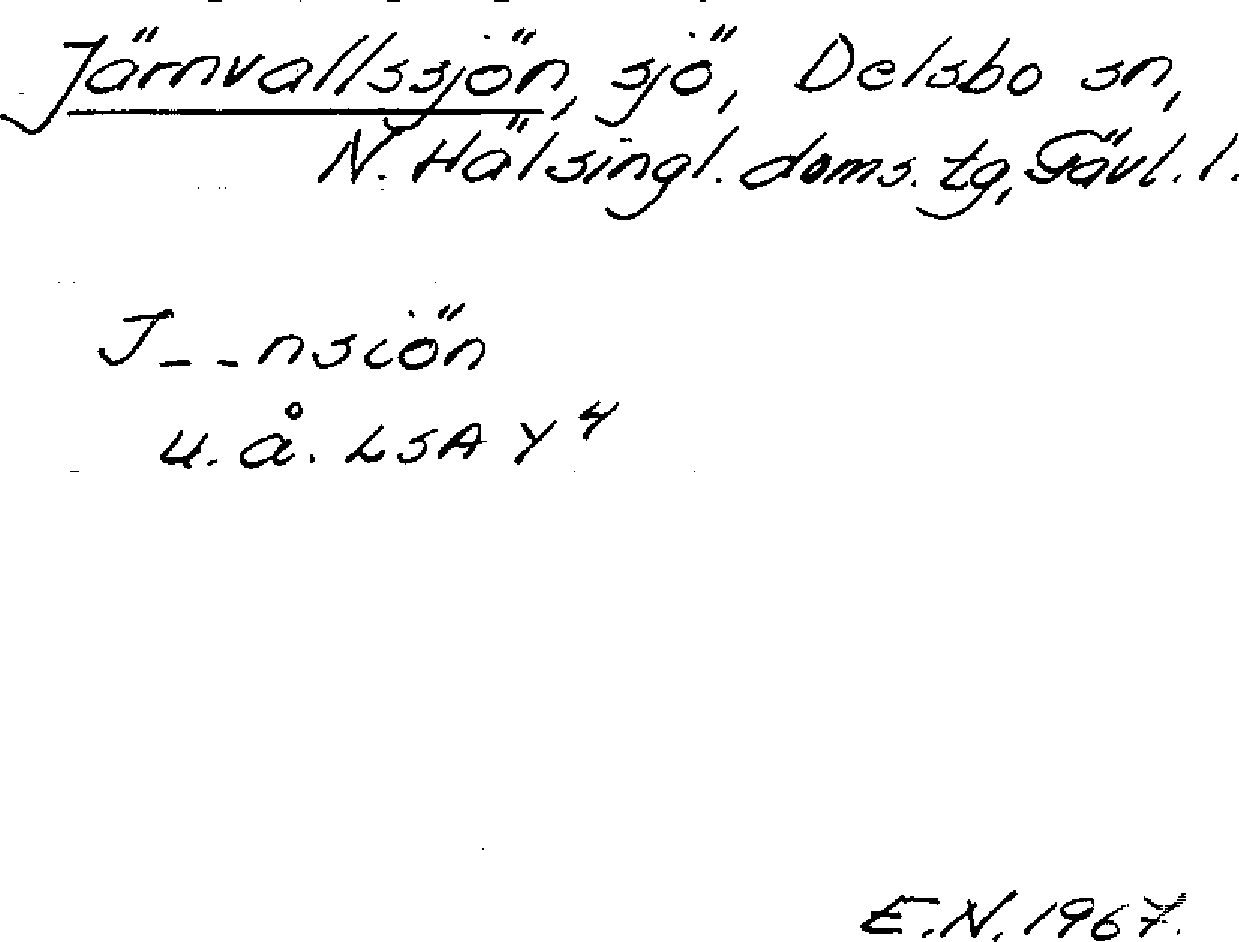 Järnvallssjön, sjö, Delsbo sn,
N. Hälsingl. doms. tg, Gävl. l.
J--nsiön
u.å. LSA Y4
E.N. 1967.